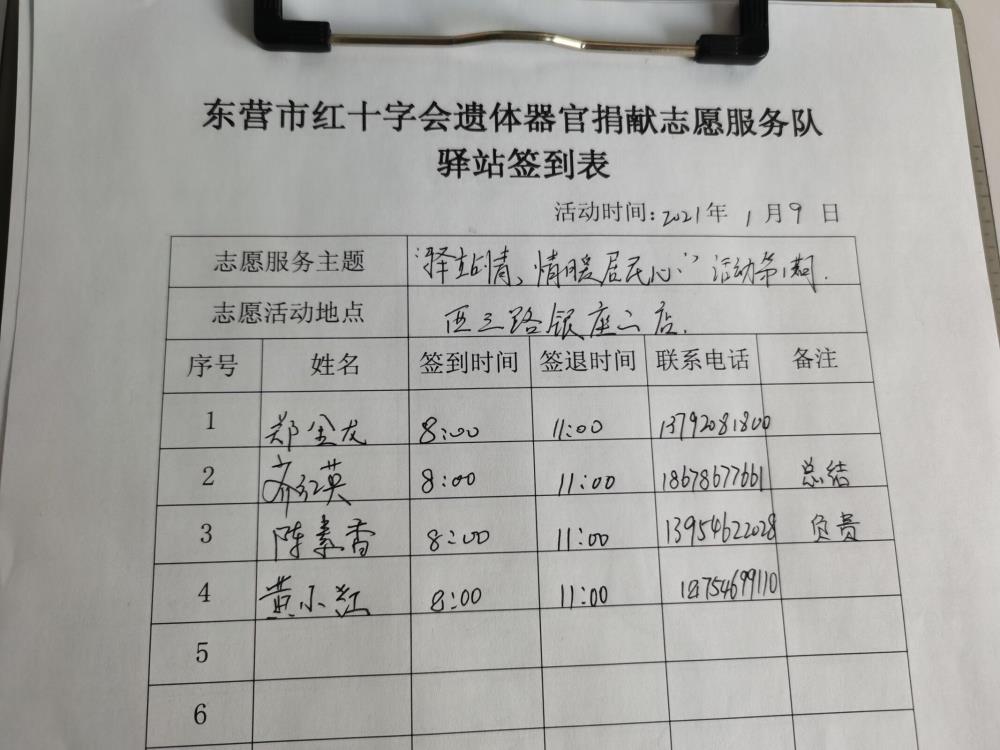 东营市红十字会遗体器官捐献志愿服务队
驿站签到表
活动时间:2021年 1月9日
志愿服务主题 "驿站情、情暖居民心"活动第1期.
志愿活动地点 西三路银座二店.
序号 姓名 签到时间 签退时间 联系电话 备注
1 郑金友 8:00 11:00 13792081800
2 齐红英 8:00 11:00 18678677661 总结
3 陈素香 8:00 11:00 13954622028 负责
4 黄小红 8:00 11:00 18754699110
5
6